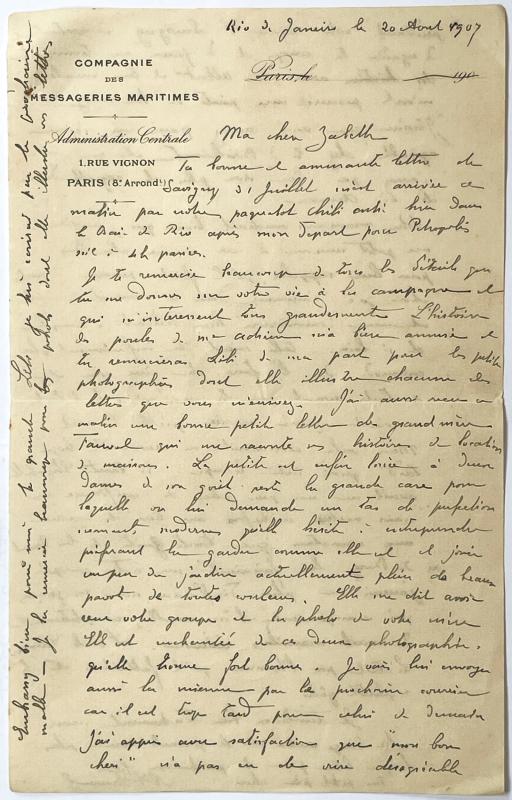 Rio de Janeiro le 20 Aout 1907
COMPAGNIE
DES
MESSAGERIES MARITIMES
Paris, le 190
Administration Centrale
1, RUE VIGNON
PARIS (8e Arrondt)
Ma chère Zabeth
Ta bonne et amusante lettre de
Savigny 31 Juillet m'est arrivée ce
matin par notre paquebot Chili entré hier dans
la Baie de Rio après mon départ pour Petropolis
soit à 4h passées.
Je te remercie beaucoup de tous les détails que
tu me donnes sur votre vie à la campagne et
qui m'intéressent tous grandement. L'histoire
des poules de m'a bien amusée et
tu remercieras Lili de ma part pour les petites
photographies dont elle illustre chacune des
lettres que vous m'envoyez. J'ai aussi reçu ce
matin une bonne petite lettre de grand mère
qui me raconte ses histoires de location
de maisons. La petite est enfin louée à deux
dames de son goût. reste la grande case pour
laquelle on lui demande un tas de perfection
nements modernes qu'elle hésite à entreprendre
préférant la garder comme elle est et jouir
un peu du jardin actuellement plein de beaux
pavots de toutes couleurs. Elle me dit avoir
reçu votre groupe et la photo de votre mère
Elle est enchantée de ces deux photographies.
qu'elle trouve fort bonnes. Je vais lui envoyer
aussi la mienne par le prochain courrier
car il est trop tard pour celui de demain
J'ai appris avec satisfaction que "mon bon
chéri" n'a pas eu de désagréable
Embrasse bien pour moi ta grande Lili je lui écrirai par la prochaine
malle — Je la remercie beaucoup pour les photos dont elle illustre vos lettres